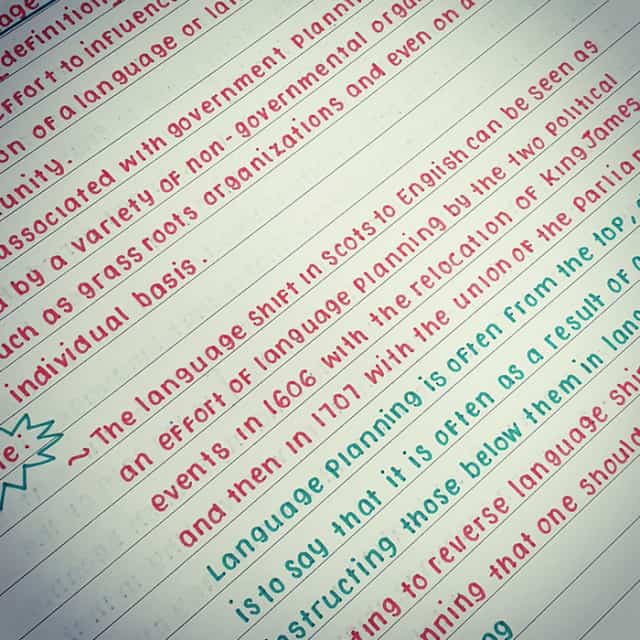 definition
effort to influence
on of a language or
unity.
associated with government plannin
by a variety of non-governmental orga
uch as grass roots organizations and even on a
individual basis.
~ The language shift in Scots to English can be seen as
an effort of language planning by the two political
events in 1606 with the relocation of King James
and then in 1707 with the union of the Parlia
Language Planning is often from the top,
is to say that it is often as a result of
nstructing those below them in lang
ting to reverse language shi
nning that one should